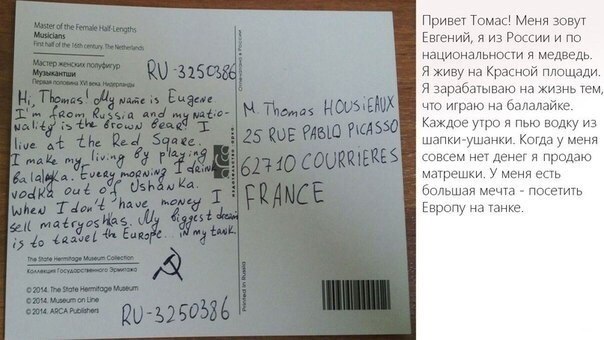 Master of the Female Half-Lengths
Musicians
First half of the 16th century. The Netherlands
Мастер женских полуфигур
Музыкантши
Первая половина XVI века. Нидерланды
RU-3250386
Hi, Thomas! My name is Eugene
I'm from Russia and my natio-
nality is the brown bear. I
live at the Red Sqare.
I make my living by playing
balalajka. Every morning I drink
vodka out of Ushanka.
When I don't have money I
sell matryoshkas. My biggest dream
is to travel the Europe... in my tank.
The State Hermitage Museum Collection
Коллекция Государственного Эрмитажа
© 2014. The State Hermitage Museum
© 2014. Museum on Line
© 2014. ARCA Publishers
RU-3250386
Отпечатано в России
арса
Printed in Russia
M. Thomas HOUSIEAUX
25 RUE PABLO PICASSO
62710 COURRIERES
FRANCE
Привет Томас! Меня зовут
Евгений, я из России и по
национальности я медведь.
Я живу на Красной площади.
Я зарабатываю на жизнь тем,
что играю на балалайке.
Каждое утро я пью водку из
шапки-ушанки. Когда у меня
совсем нет денег я продаю
матрешки. У меня есть
большая мечта - посетить
Европу на танке.